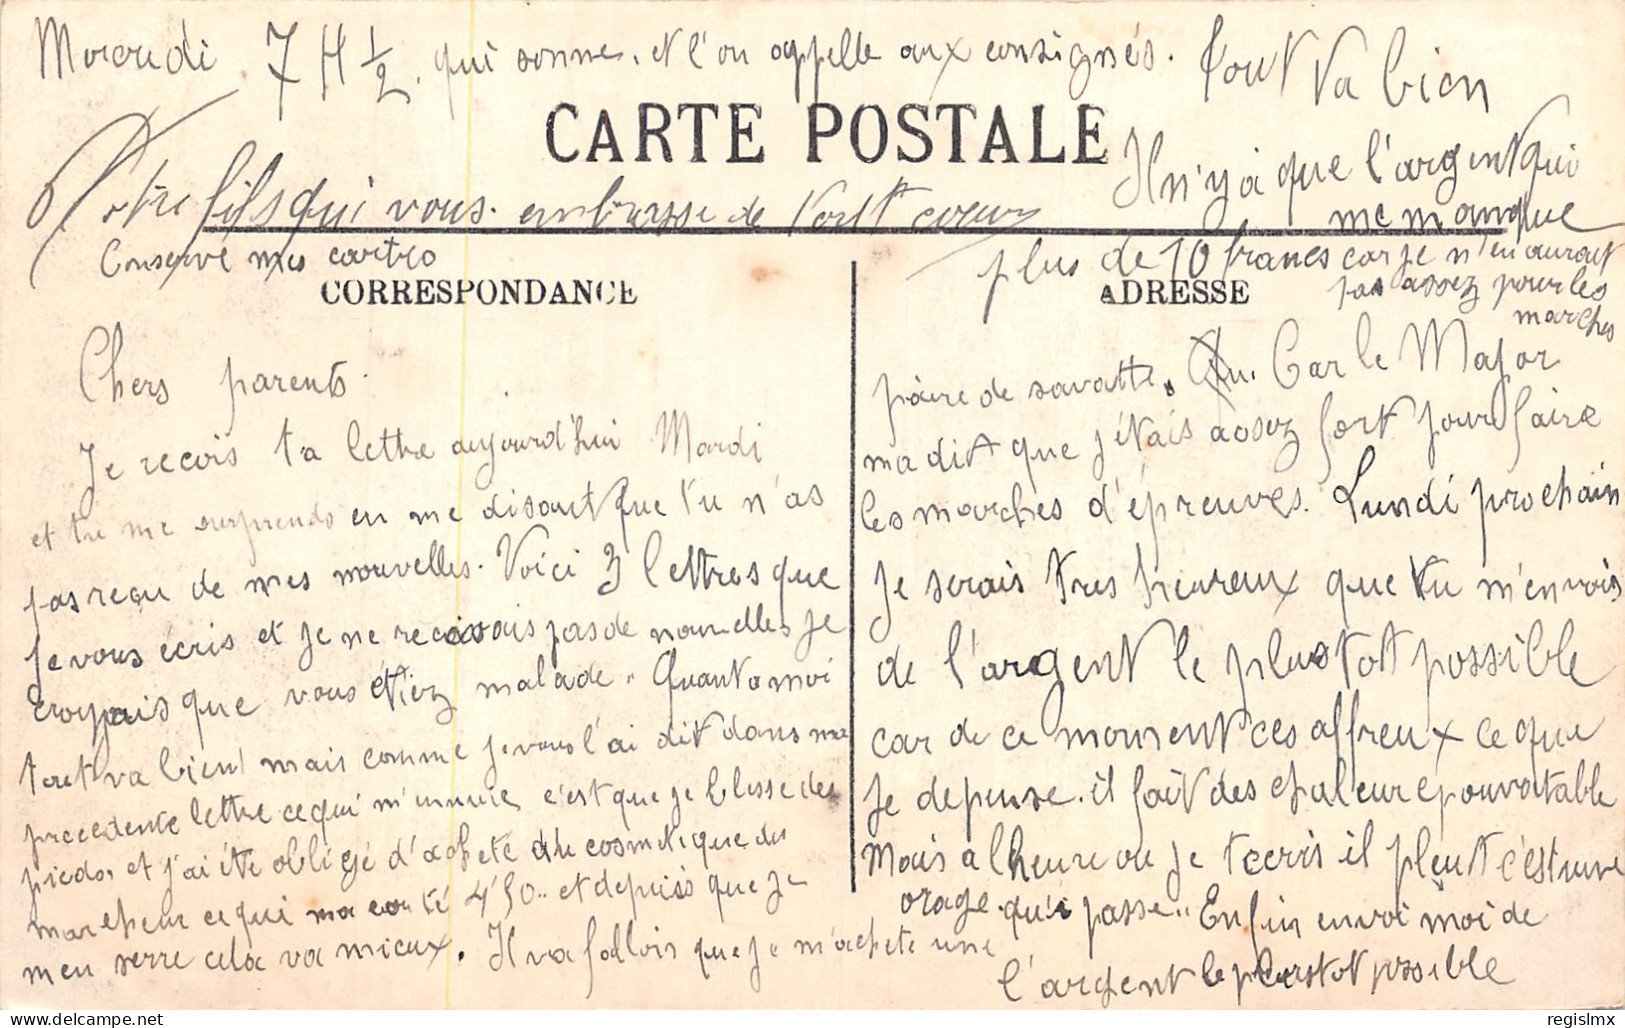 Mercredi 7 H 1/2 qui sonne. et l'on appelle aux consignés. Tout va bien
CARTE POSTALE
Il n'y a que l'argent qui
me manque
Votre fils qui vous embrasse de tout coeur
plus de 10 francs car je n'en aurait
pas assez pour les
marches
Conserve mes cartes
CORRESPONDANCE
Chers parents.
Je recois ta lettre aujourd'hui Mardi
et tu me surprends en me disant que tu n'as
pas reçu de mes nouvelles. Voici 3 lettres que
je vous écris et je ne recevais pas de nouvelles je
croyais que vous étiez malade. Quant a moi
tout va bien mais comme je vous l'ai dit dans ma
precedente lettre ce qui m'ennuie c'est que je blesse des
pieds et j'ai été obligé d'acheté du cosmetique du
marcheur ce qui ma couté 4'50.. et depuis que je
m'en serre cela va mieux. Il va falloir que je m'achete une
ADRESSE
paire de savatte. Car le Major
ma dit que j'étais assez fort pour faire
les marches d'épreuves. Lundi prochain
je serais tres heureux que tu m'envois
de l'argent le plustot possible
car de ce moment ces affreux ce que
je depense. il fait des chaleur epouvatable
Mais a l'heure ou je t'ecris il pleut c'est une
orage qui passe.. Enfin envoi moi de
l'argent le plustot possible
regislmx